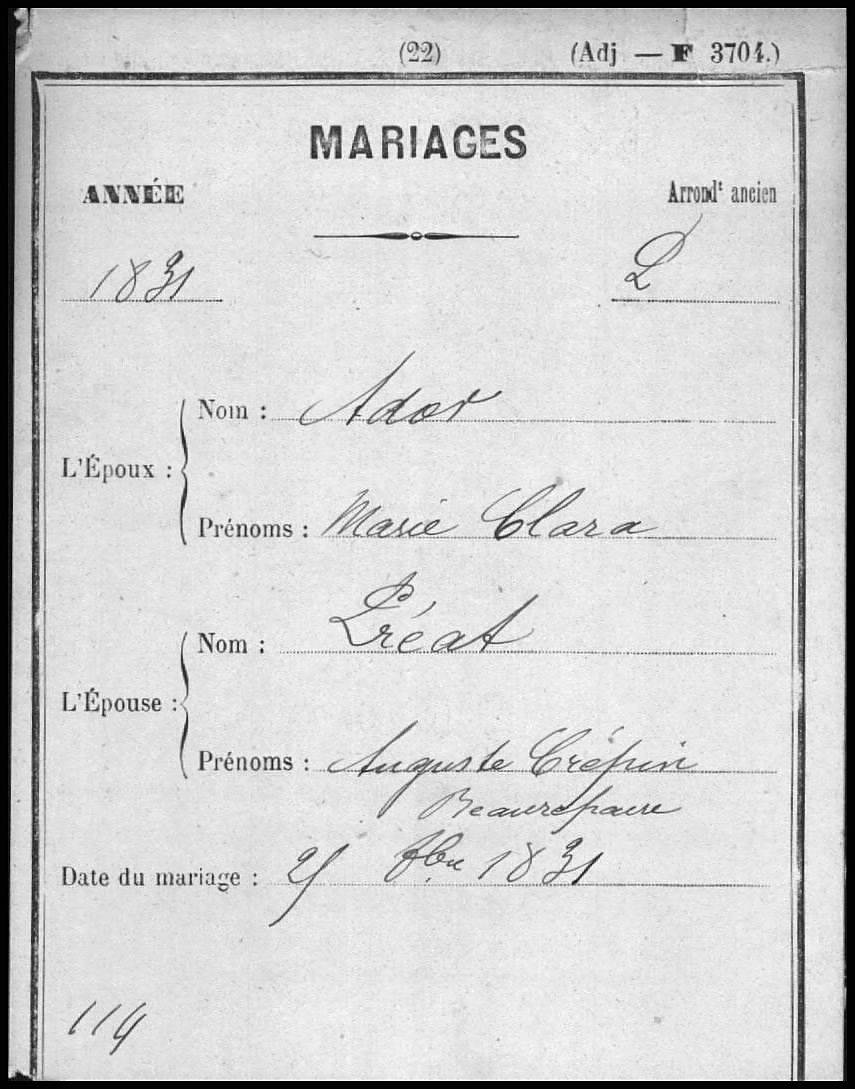 (22) (Adj — F 3704.)
MARIAGES
ANNÉE Arrondt ancien
1831 2
L'Époux :
Nom : Ador
Prénoms : Marie Clara
L'Épouse :
Nom : Préat
Prénoms : Auguste Crépin
Beaurepaire
Date du mariage : 1831
114